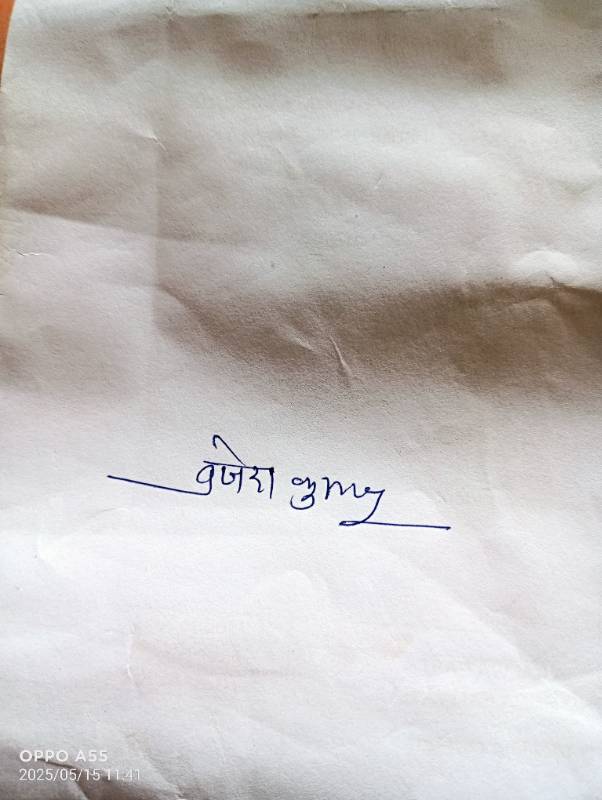 ब्रजेश कुमार
OPPO A55
2025/05/15 11:41